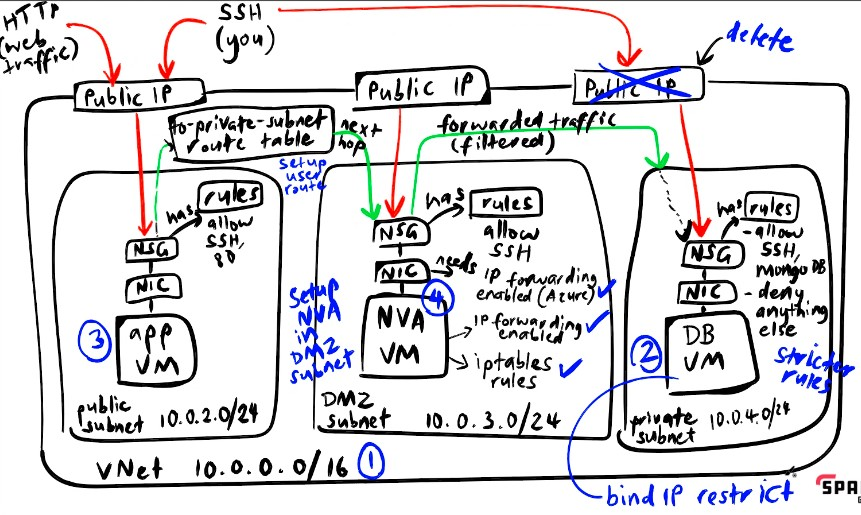 HTTP
(web
traffic)
SSH
(you)
delete
Public IP
Public IP
Public IP
to-private-subnet
route table
next
hop
forwarded traffic
(filtered)
setup
user
route
has
rules
allow
SSH,
80
NSG
NIC
app
VM
3
public
subnet
10.0.2.0/24
has
rules
allow
SSH
NSG
NIC
needs
IP forwarding
enabled (Azure)
4
NVA
VM
IP forwarding
enabled
iptables
rules
setup
NVA
in
DMZ
subnet
DMZ
subnet
10.0.3.0/24
has
rules
- allow
SSH,
mongoDB
- deny
anything
else
NSG
NIC
2
DB
VM
stricter
rules
private
subnet
10.0.4.0/24
vNet 10.0.0.0/16
1
bind IP restrict
SPA